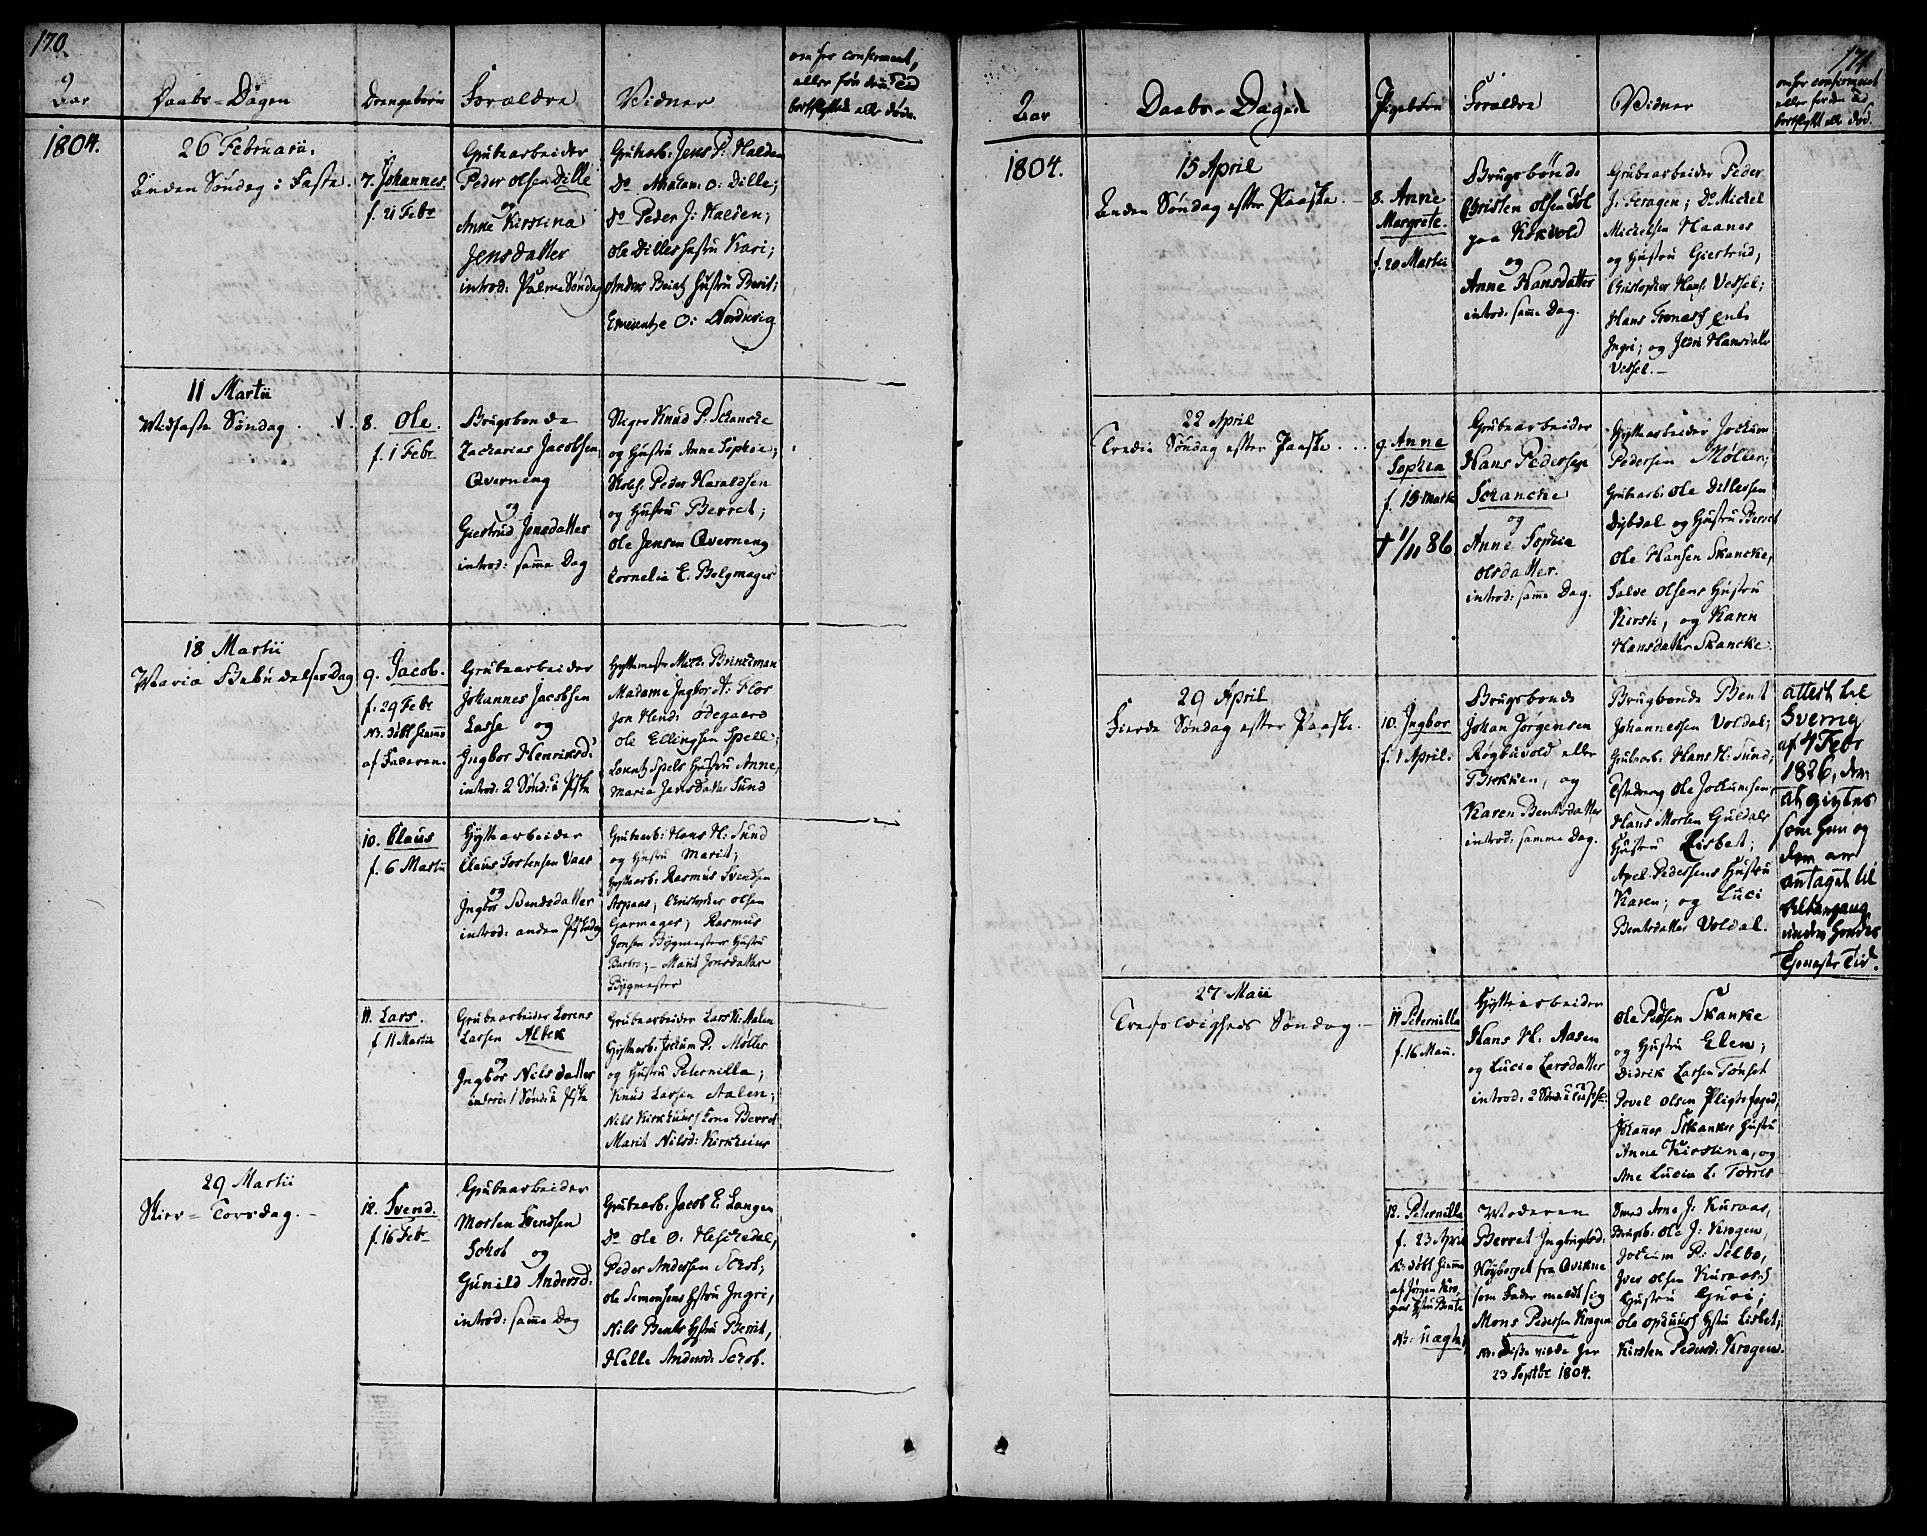 170.
Aar
Daabs-Dagen
Drengebørn
Forældre
Vidner
om her confirmeret,
eller før den Tid
bortflyttet eller døde.
1804.
26 Februarii.
Anden Søndag i Faste.
7. Johannes.
f. 21 Febr
Grubearbeider
Peder Olsen Dille
og
Anne Kirstina
Jensdatter
introd: Palme Søndag
Grubarb: Jens P: Halden
Do Abraham O: Dille;
Do Peder J: Halden;
Ole Dilles Hustru Kari;
Anders Beintz Hustru Berit;
O: Nordvig
11 Martii
Midfaste Søndag.
8. Ole.
f. 1 Febr
Brugsbonde
Zacharias Jacobsen
Qverneng
og
Giertrud Jensdatter
introd: samme Dag
Stigr Knud P: Schancke
og Hustru Anne Sophie;
Peder Haraldsen
og Hustru Berret;
Ole Jensen Qverneng
Cornelia E. Belgmager
18 Martii
Mariæ Bebudelses Dag
9. Jacob.
f. 29 Febr
NB. døbt hiemme
af Faderen.
Grubearbeider
Johannes Jacobsen
Lasse og
Ingbor Henriksd:
introd: 2 Sønd: a Pske
Hyttemestr Mich: Brinchman
Madame Ingbor A: Flor
Jon Hend: Ødegaard
Ole Ellingsen Spell
Lorentz Spels Hustru Anne,
Maria Jansdatter Sund
10. Claus
f. 6 Martii
Hyttearbeider
Claus Tostensen Vaar
og
Ingbor Svendsdatter
introd: anden Pskedag
Grubearb: Hans H: Sund
og Hustru Marit;
Hyttearb: Rasmus Svendsen
Aspaas; Christopher Olsen
Garmager; Rasmus
Jonsen Bygmesters Hustru
Barbro; - Marit Jonsdatter
Bygmester
11. Lars.
f 11 Martii
Grubearbeider Lorens
Larsen Albek
og
Ingbor Nilsdatter
introd: 1 Sønd: a Pske
Grubearbeider Lars K: Aalen
Hyttearb: Jochum P: Møller
og Hustru Peternilla;
Knud Larsen Aalen;
Nils Kirkhuus Kone Berret
Marit Nilsd: Kirkhuus
29 Martii
Skier-Torsdag.
12. Svend.
f. 16 Febr
Grubearbeider
Morten Svendsen
Schot og
Gunild Andersd:
introd: samme Dag
Grubearb: Jacob E: Langen
Do Ole O: Heschedal,
Peder Andersen Schot,
Ole Simonsens Hstru Ingri,
Nils Bents Hstru Berrit,
Helle Andersd: Schot.
171
Aar
Daabs-Dagen
Pigebørn
Forældre
Vidner
om her confirmeret
eller før den Tid
bortflyttet eller død.
1804.
15 April
Anden Søndag efter Paaske.
8. Anne
Margrete.
f. 20 Martii
Brugsbonde
Christen Olsen Tol
paa Kokvold
og
Anne Hansdatter
introd: samme Dag.
Grubearbeider Peder
J: Feragen; Do Michel
Michelsen Haanes
og Hustru Giertrud;
Christopher Hans: Vessel;
Hans Tronæs Enke
Ingri; og Hansdatter
Vessel.-
22 April
Tredie Søndag efter Paaske...
9. Anne
Sophia
f. 13 Martii
† 1/11 86
Grubearbeider
Hans Pedersen
Schancke
og
Anne Sophia
Olsdatter.
introd: samme Dag.
Hyttearbeider Jochum
Pedersen Møller;
Grubearb: Ole Ditlefsen
Dybdal og Hustru Berret
Ole Hansen Skancke,
Salve Olsens Hustru
Kirsti, og Karen
Hansdatter Skancke.
29 April
Fierde Søndag efter Paaske.
10. Ingbor
f. 1 April.
Brugsbonde
Johan Jørgensen
Røgbuvold eller
Brekken, og
Karen Bentsdatter
introd: samme Dag.
Brugbonde Bent
Johannessen Voldal;
Grubearb: Hans H: Sund;
Ole Jochumsen,
Hans Morten Guldals
Hustru Lisbet;
Apel Pedersens Hustru
Karen; og Luci
Bentsdatter Voldal.
attest til
Sverrig
af 4 Febr
1826,
at giftes
som hun og
den er
antaget til
under hendes
Tieneste Tid.
27 Maii
Trefoldigheds Søndag.
11 Peternilla
f. 16 Maii.
Hyttearbeider
Hans H: Aasen
og Lucia Larsdatter
introd: 2 Sønd: a
Ole Pedsen Skanke
og Hustru Elen;
Didrik Larsen Tønset
Povel Olsen Pligtsfoged,
Johanes Skankes Hustru
Anne Kirstina, og
Ane Lucia L. Torres
12. Peternilla
f. 23 April
NB: døbt hiemme
af Jørgen
Hstru Bente
NB: uægte
Moderen
Berret Ingbrigtsd:
Høyberget fra Qvikne
som Fader meldt sig
Mons Pedersen Krogen
NB: Disse viede her
23 Septbr 1804.
Smed Arne J: Kuraas,
Brugsb: Ole J: Krogen,
Jochum P: Selbo,
Iver Olsen Kuraas's
Hustru Guri;
Ole Hstru Lisbet;
Kirsten Pedersd: Krogen.